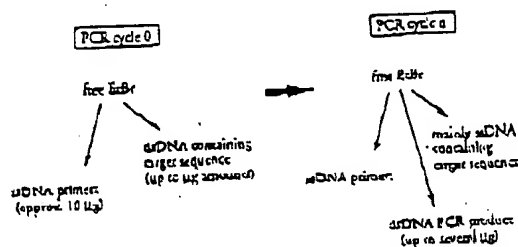 PCR cycle 0
free EtBr
dsDNA containing
target sequence
(up to µg amount)
ssDNA primers
(approx 10 µg)
PCR cycle n
free EtBr
mainly ssDNA
containing
target sequence
ssDNA primers
dsDNA PCR product
(up to several µg)